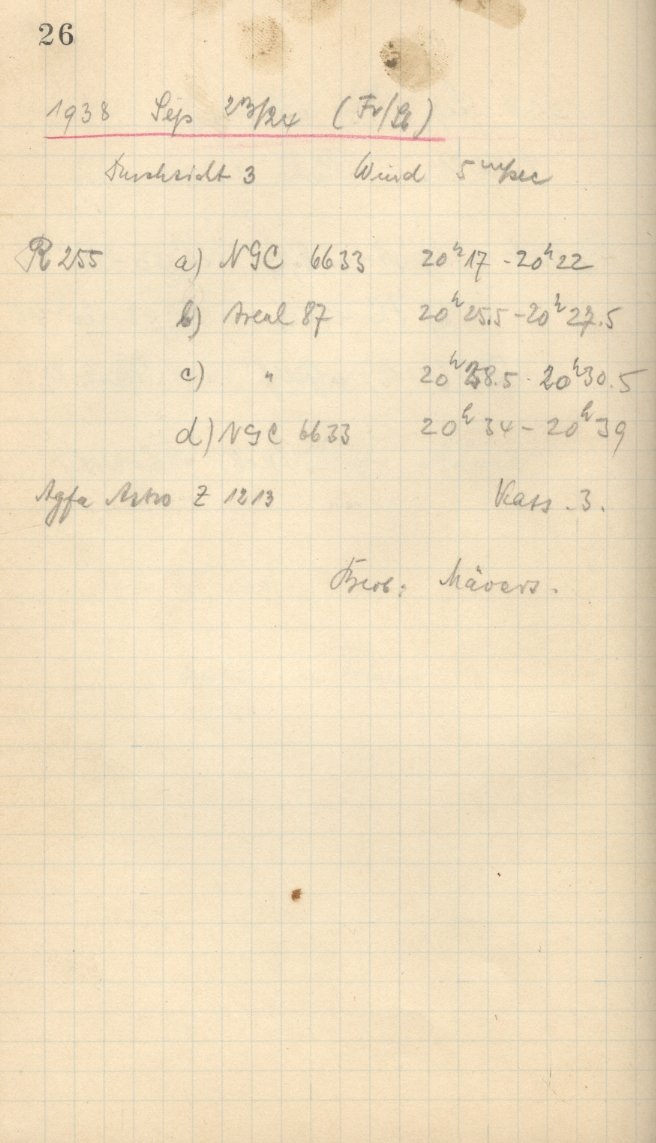 26
1938 Sep 23/24 (Fr/Sa)
Durchsicht 3 Wind 5 m/sec
R 255 a) NGC 6633 20h17 - 20h22
b) Areal 87 20h25.5 - 20h27.5
c) " 20h28.5 - 20h30.5
d) NGC 6633 20h34 - 20h39
Agfa Astro Z 1213 Kass. 3.
Beob: Mävers.